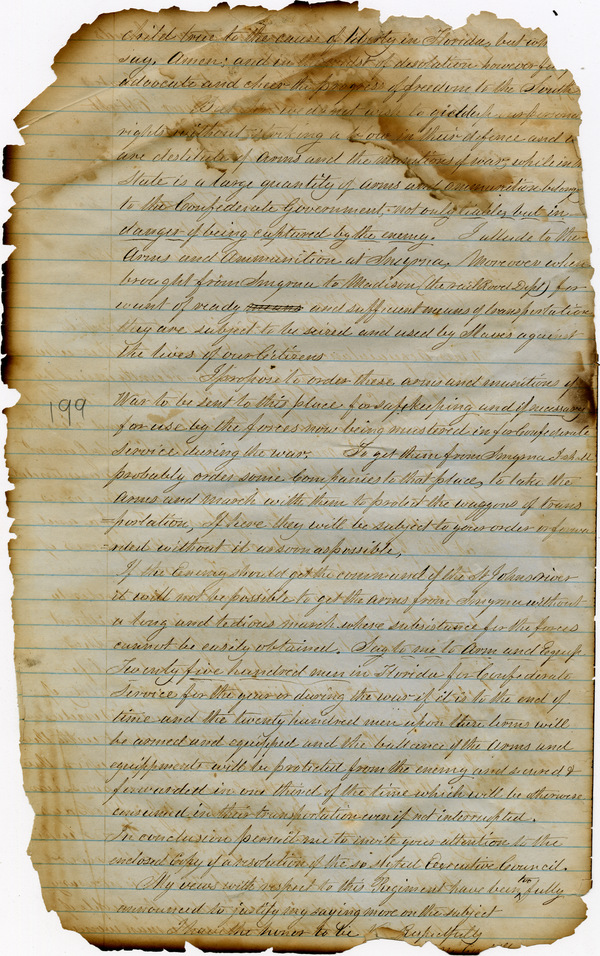 child true to the cause of liberty in Florida, but wh
say, Amen; and in the midst of desolation however
advocate and cheer the progress of freedom to the South
we do not wish to
rights without striking a blow in their defence and
are destitute of Arms and the munitions of war; while in
State is a large quantity of arms and ammunition belong
to the Confederate Government; not only useless but in
danger of being captured by the enemy. I allude to the
Arms and Ammunition at Smyrna. Moreover when
brought from Smyrna to Madison (the rail Road Dept) for
want of ready means and sufficient means of transportation
they are subject to be seized and used by Slaves against
the lives of our Citizens
I propose to order these arms and munitions of
War to be sent to this place for safe keeping and if necessary
for use by the forces now being mustered in for Confederate
Service during the war. To get them from Smyrna I shall
probably order some Companies to that place, to take the
Arms and March with them to protect the waggons of trans
=portation, If here they will be subject to your order or forwa
=rded without it as soon as possible,
If the Enemy should get the command of the St Johns river
it will not be possible to get the arms from Smyrna without
a long and tedious march where subsistance for the forces
cannot be easily obtained. Say to me to Arm and Equip
Twenty five hundred men in Florida for Confederate
Service for the year or during the war if it is to the end of
time and the twenty hundred men upon there terms will
be armed and equipped and the ballance of the Arms and
equippments will be protected from the enemy and secured &
forwarded in one third of the time which will be otherwise
consumed in their transportation even if not interrupted.
In conclusion permit me to invite your attention to the
enclosed Copy of a resolution of the so styled Executive Council.
My views with respect to this Regiment have been too fully
announced to justify my saying more on the subject
I have the honor to be Respectfully
199